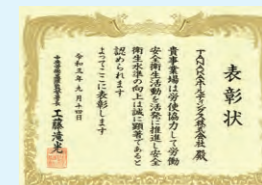 表彰状
TANAKAホールディングス株式会社 殿
貴事業場は労使協力して労働
安全衛生活動を活発に推進し安全
衛生水準の向上は誠に顕著であると
認められます
よってここに表彰します
令和三年九月十四日
工藤